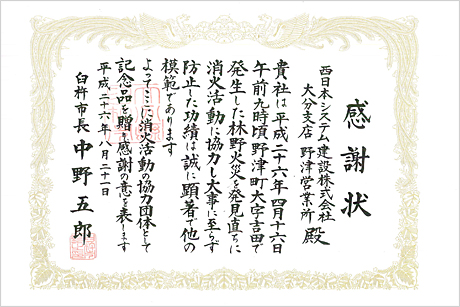 感謝状
西日本システム建設株式会社
大分支店 野津営業所 殿
貴社は平成二十六年四月十六日
午前九時頃野津町大字吉田で
発生した林野火災を発見直ちに
消火活動に協力し大事に至らず
防止した功績は誠に顕著で他の
模範であります
よってここに消火活動の協力団体として
記念品を贈り感謝の意を表します
平成二十六年八月二十一日
臼杵市長 中野五郎